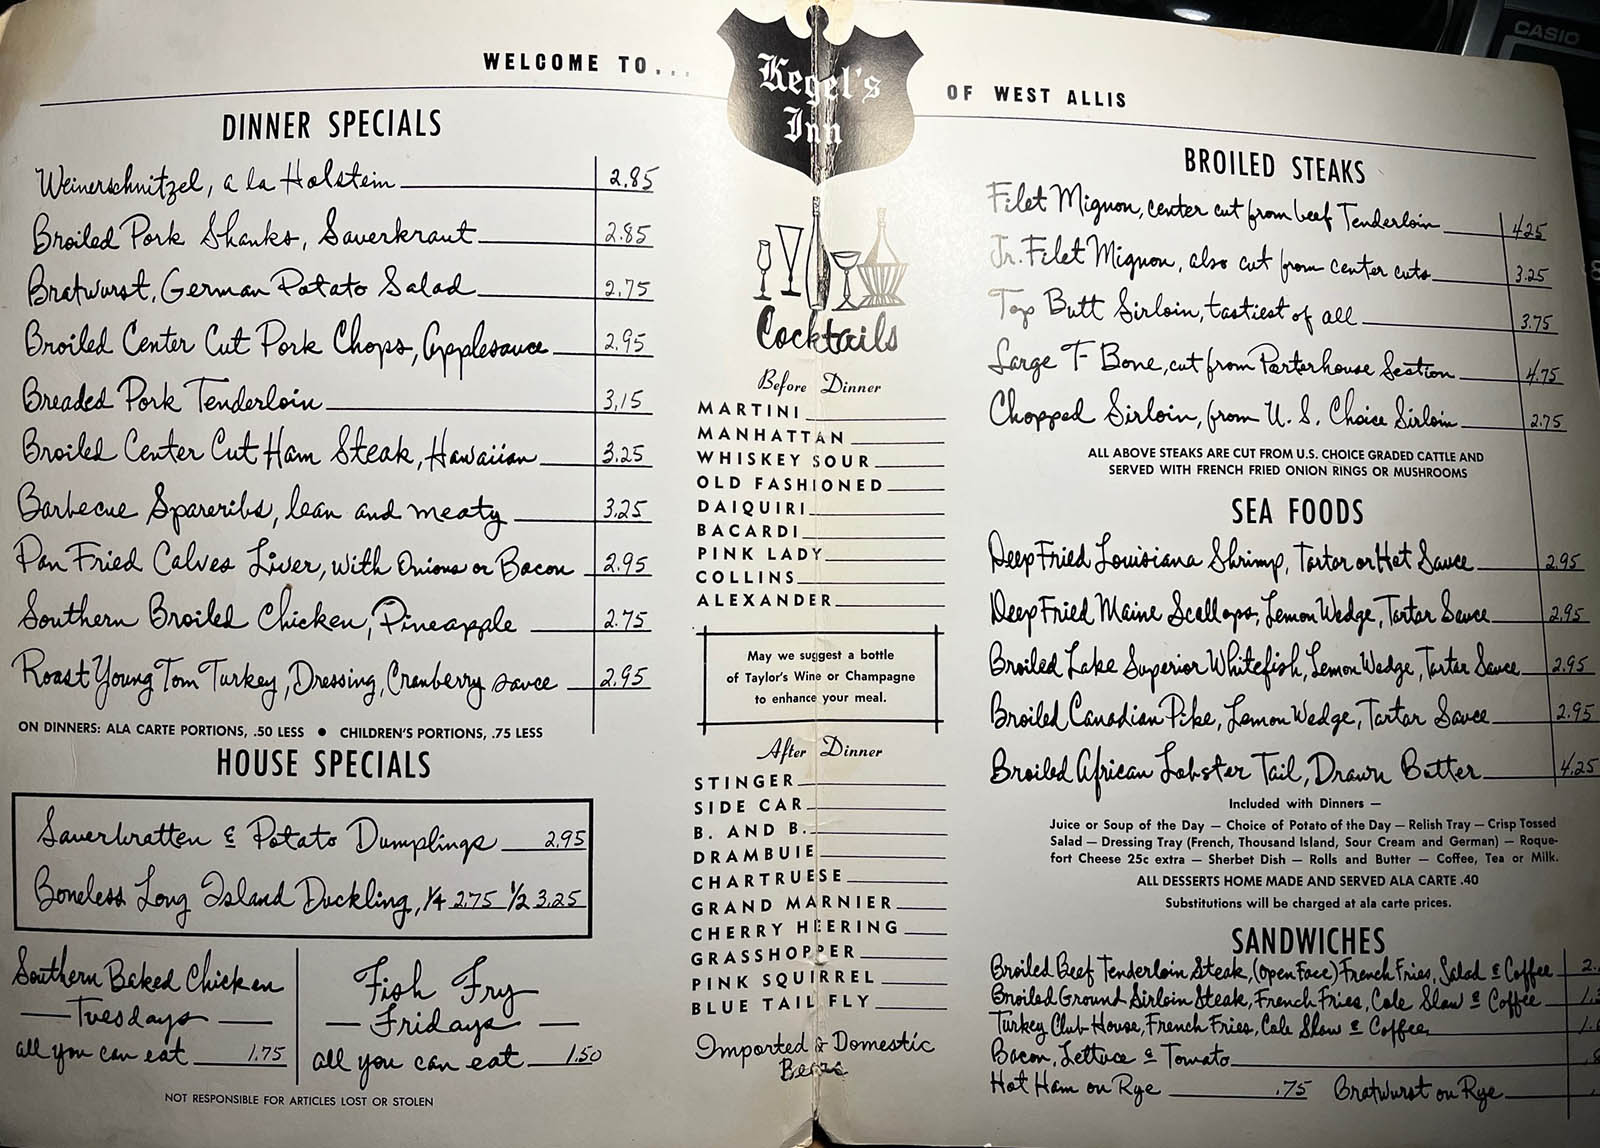 WELCOME TO...
Kegel's
Inn
OF WEST ALLIS
DINNER SPECIALS
Weinerschnitzel, a la Holstein 2.85
Broiled Pork Shanks, Sauerkraut 2.85
Bratwurst, German Potato Salad 2.75
Broiled Center Cut Pork Chops, Applesauce 2.95
Breaded Pork Tenderloin 3.15
Broiled Center Cut Ham Steak, Hawaiian 3.25
Barbecue Spareribs, lean and meaty 3.25
Pan Fried Calves Liver, with Onions or Bacon 2.95
Southern Broiled Chicken, Pineapple 2.75
Roast Young Tom Turkey, Dressing, Cranberry sauce 2.95
ON DINNERS: ALA CARTE PORTIONS, .50 LESS ● CHILDREN'S PORTIONS, .75 LESS
HOUSE SPECIALS
Sauerbratten & Potato Dumplings 2.95
Boneless Long Island Duckling, 1/4 2.75 1/2 3.25
Southern Baked Chicken
Tuesdays
all you can eat 1.75
Fish Fry
Fridays
all you can eat 1.50
NOT RESPONSIBLE FOR ARTICLES LOST OR STOLEN
Cocktails
Before Dinner
MARTINI
MANHATTAN
WHISKEY SOUR
OLD FASHIONED
DAIQUIRI
BACARDI
PINK LADY
COLLINS
ALEXANDER
May we suggest a bottle
of Taylor's Wine or Champagne
to enhance your meal.
After Dinner
STINGER
SIDE CAR
B. AND B.
DRAMBUIE
CHARTRUESE
GRAND MARNIER
CHERRY HEERING
GRASSHOPPER
PINK SQUIRREL
BLUE TAIL FLY
Imported & Domestic
Beers
BROILED STEAKS
Filet Mignon, center cut from beef Tenderloin 4.25
Jr. Filet Mignon, also cut from center cuts 3.25
Top Butt Sirloin, tastiest of all 3.75
Large T-Bone, cut from Porterhouse Section 4.75
Chopped Sirloin, from U. S. Choice Sirloin 2.75
ALL ABOVE STEAKS ARE CUT FROM U.S. CHOICE GRADED CATTLE AND
SERVED WITH FRENCH FRIED ONION RINGS OR MUSHROOMS
SEA FOODS
Deep Fried Louisiana Shrimp, Tartar or Hot Sauce 2.95
Deep Fried Maine Scallops, Lemon Wedge, Tartar Sauce 2.95
Broiled Lake Superior Whitefish, Lemon Wedge, Tartar Sauce 2.95
Broiled Canadian Pike, Lemon Wedge, Tartar Sauce 2.95
Broiled African Lobster Tail, Drawn Butter 4.25
Included with Dinners —
Juice or Soup of the Day — Choice of Potato of the Day — Relish Tray — Crisp Tossed
Salad — Dressing Tray (French, Thousand Island, Sour Cream and German) — Roque-
fort Cheese 25c extra — Sherbet Dish — Rolls and Butter — Coffee, Tea or Milk.
ALL DESSERTS HOME MADE AND SERVED ALA CARTE .40
Substitutions will be charged at ala carte prices.
SANDWICHES
Broiled Beef Tenderloin Steak, (open Face) French Fries, Salad & Coffee 2.
Broiled Ground Sirloin Steak, French Fries, Cole Slaw & Coffee 1.
Turkey Club House, French Fries, Cole Slaw & Coffee 1.
Bacon, Lettuce & Tomato
Hot Ham on Rye .75 Bratwurst on Rye
CASIO